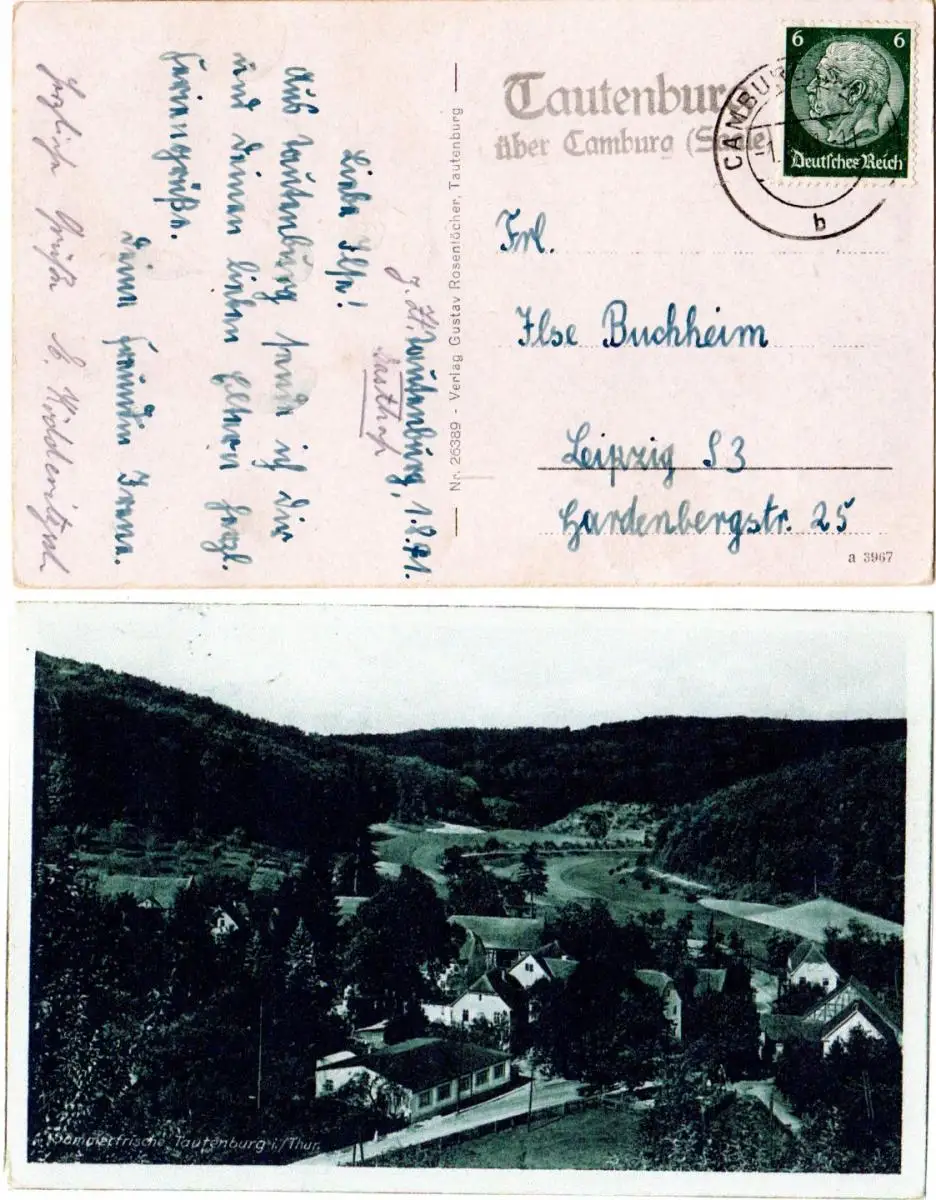 Tautenburg
über Camburg (Saale)
CAMBURG
b
6 6
Deutsches Reich
Frl.
Ilse Buchheim
Leipzig S3
Hardenbergstr. 25
a 3967
Nr. 26389 - Verlag Gustav Rosenlöcher, Tautenburg
z. Zt. Tautenburg, 1.8.41.
Gasthof
Liebe Ilse!
Aus Tautenburg sende ich Dir
und Deinen lieben Eltern herzl.
Feriengrüße.
Deine Freundin Irene.
Herzliche Grüße
Sommerfrische Tautenburg i./Thür.